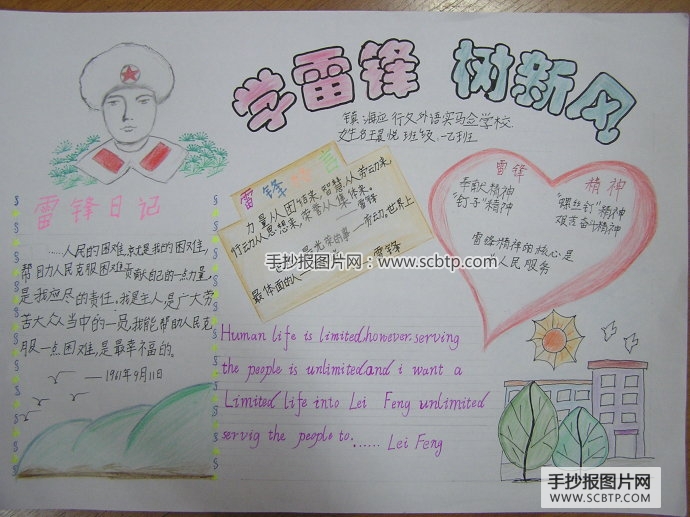 学雷锋 树新风
镇海应行久外语实验学校
雷锋日记
……人民的困难,就是我的困难,
帮助人民克服困难贡献自己的一点力量,
是我应尽的责任。我是主人,是广大劳
苦大众当中的一员,我能帮助人民克
服一点困难,是最幸福的。
——1961年9月11日
雷锋名言
力量从团结来,智慧从劳动来,
行动从思想来,荣誉从集体来。
雷锋
——劳动。世界上
最光荣的事
最体面的人
雷锋
雷锋 精神
奉献精神
"钉子"精神
"螺丝钉"精神
艰苦奋斗精神
雷锋精神的核心是
人民服务
Human life is limited,however.serving
the people is unlimited.and i want a
Limited life into Lei Feng unlimited
servig the people to...... Lei Feng
手抄报图片网:www.scbtp.com
手抄报图片网
WWW.SCBTP.COM